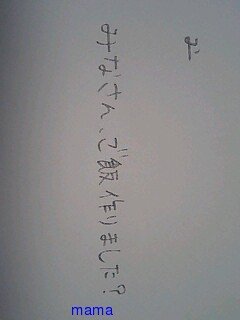 みなさん、ご飯作りました?
mama